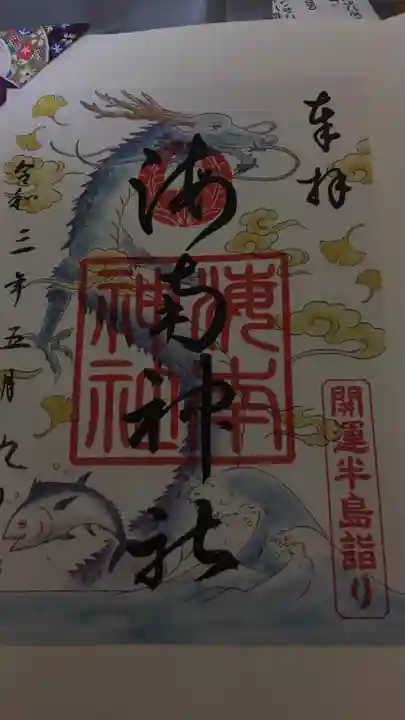 奉拝
海南神社
海南神社
開運半島詣り
令和三年五月九日